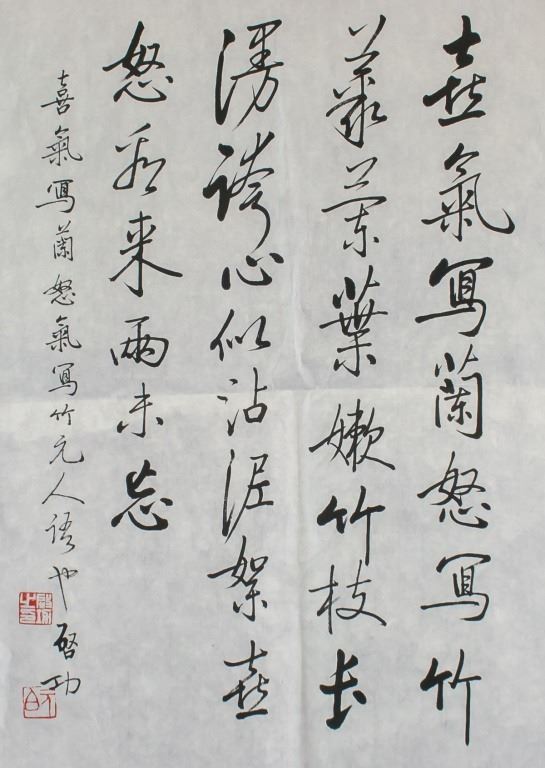 喜氣寫蘭怒寫竹
叢蘭葉嫩竹枝長
漫誇心似沾泥絮喜
怒看来兩未忘
喜氣寫蘭怒氣寫竹元人語也 啓功
元白